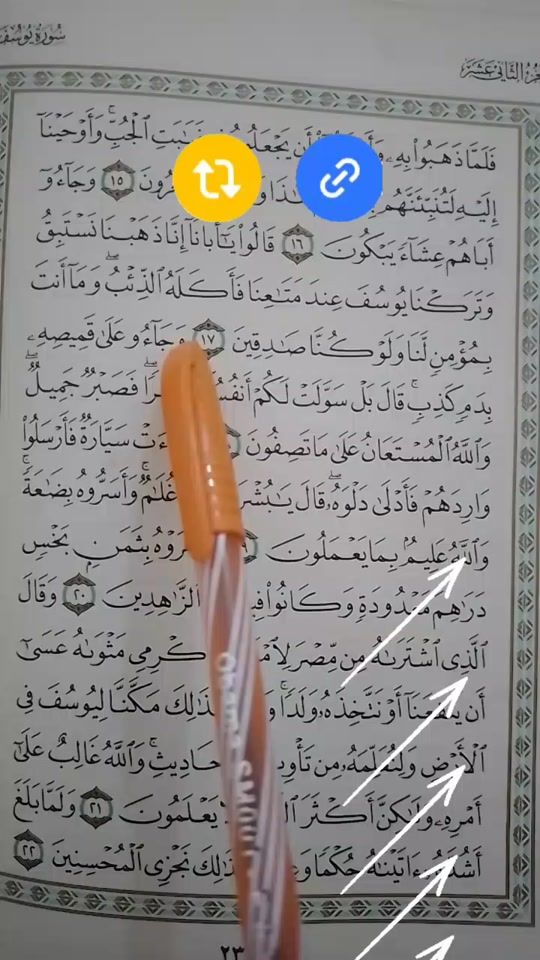 سُورَةُ يُوسُفَ
الثَّانِي عَشَرَ
فَلَمَّا ذَهَبُوا۟ بِهِۦ أَن يَجْعَلُوهُ غَيَـٰبَتِ ٱلْجُبِّ ۚ وَأَوْحَيْنَآ
إِلَيْهِ لَتُنَبِّئَنَّهُم ١٥ وَجَآءُو
أَبَاهُمْ عِشَآءً يَبْكُونَ ١٦ قَالُوا۟ يَـٰٓأَبَانَآ إِنَّا ذَهَبْنَا نَسْتَبِقُ
وَتَرَكْنَا يُوسُفَ عِندَ مَتَـٰعِنَا فَأَكَلَهُ ٱلذِّئْبُ ۖ وَمَآ أَنتَ
بِمُؤْمِنٍ لَّنَا وَلَوْ كُنَّا صَـٰدِقِينَ ١٧ وَجَآءُو عَلَىٰ قَمِيصِهِۦ
بِدَمٍ كَذِبٍ ۚ قَالَ بَلْ سَوَّلَتْ لَكُمْ فَصَبْرٌ جَمِيلٌ ۖ
وَٱللَّهُ ٱلْمُسْتَعَانُ عَلَىٰ مَا تَصِفُونَ سَيَّارَةٌ فَأَرْسَلُوا۟
وَارِدَهُمْ فَأَدْلَىٰ دَلْوَهُۥ ۖ قَالَ غُلَـٰمٌ ۚ وَأَسَرُّوهُ بِضَـٰعَةً ۚ
وَٱللَّهُ عَلِيمٌۢ بِمَا يَعْمَلُونَ بِثَمَنٍۭ بَخْسٍ
دَرَٰهِمَ مَعْدُودَةٍ وَكَانُوا۟ ٱلزَّٰهِدِينَ ٢٠ وَقَالَ
ٱلَّذِى ٱشْتَرَىٰهُ مِن مِّصْرَ أَكْرِمِى مَثْوَىٰهُ عَسَىٰٓ
أَن يَنفَعَنَآ أَوْ نَتَّخِذَهُۥ وَلَدًا ۚ مَكَّنَّا لِيُوسُفَ فِى
ٱلْأَرْضِ وَلِنُعَلِّمَهُۥ مِن تَأْوِيلِ ٱلْأَحَادِيثِ ۚ وَٱللَّهُ غَالِبٌ عَلَىٰٓ
أَمْرِهِۦ وَلَـٰكِنَّ أَكْثَرَ يَعْلَمُونَ ٢١ وَلَمَّا بَلَغَ
أَشُدَّهُۥٓ ءَاتَيْنَـٰهُ حُكْمًا نَجْزِى ٱلْمُحْسِنِينَ ٢٢